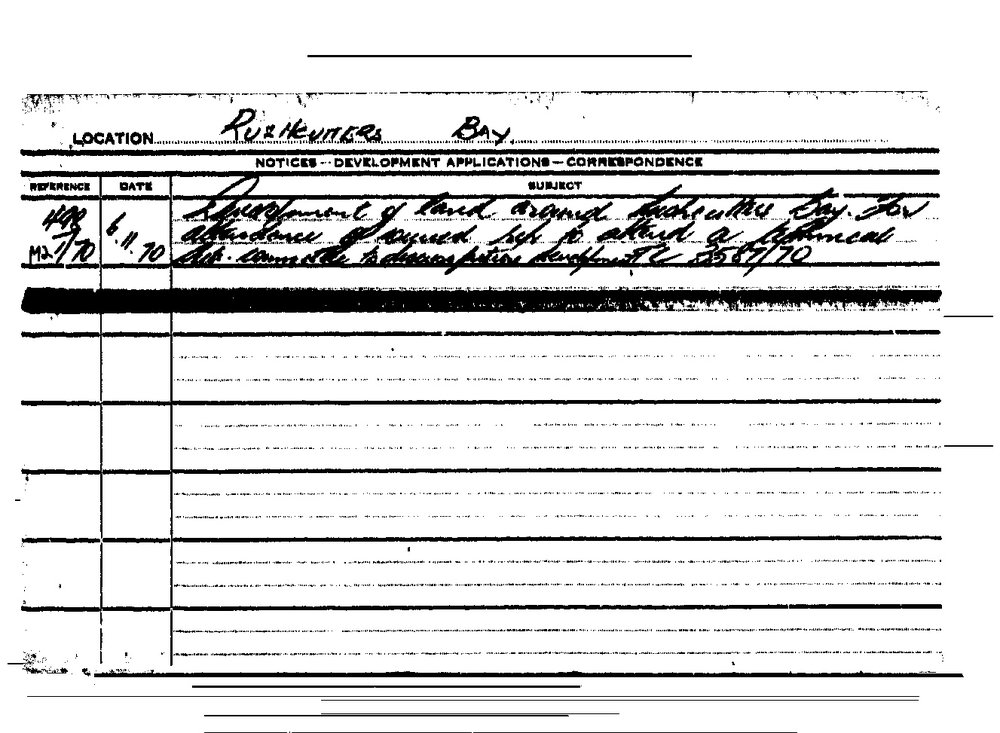 LOCATION RUSHCUTTERS BAY.
NOTICES - DEVELOPMENT APPLICATIONS - CORRESPONDENCE
REFERENCE DATE SUBJECT
499 Development of land around Rushcutters Bay. For
6.11.70 attendance of council rep to attend a technical
M2 1/70 committee to discuss future development 3587/70